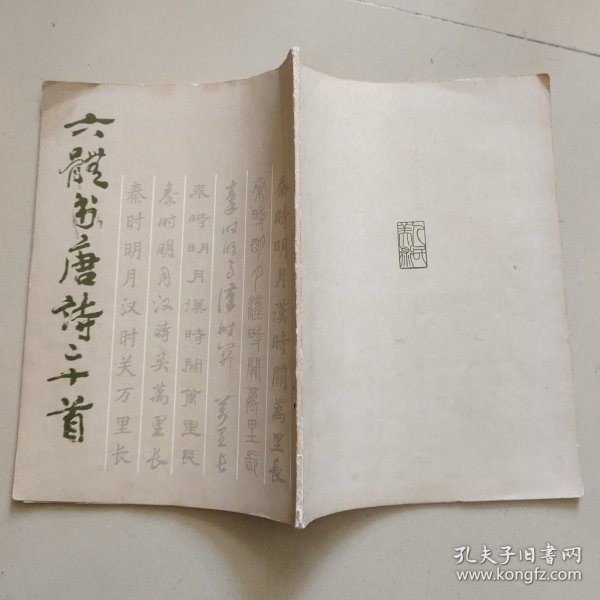 六體书唐詩二十首
秦時明月漢時關萬里長
秦時明月漢時關萬里長
秦时明月漢时关萬里長
秦時明月漢時關萬里長
秦时明月汉時关萬里長
秦时明月汉时关万里长
人民美術
孔夫子旧书网
www.kongfz.com